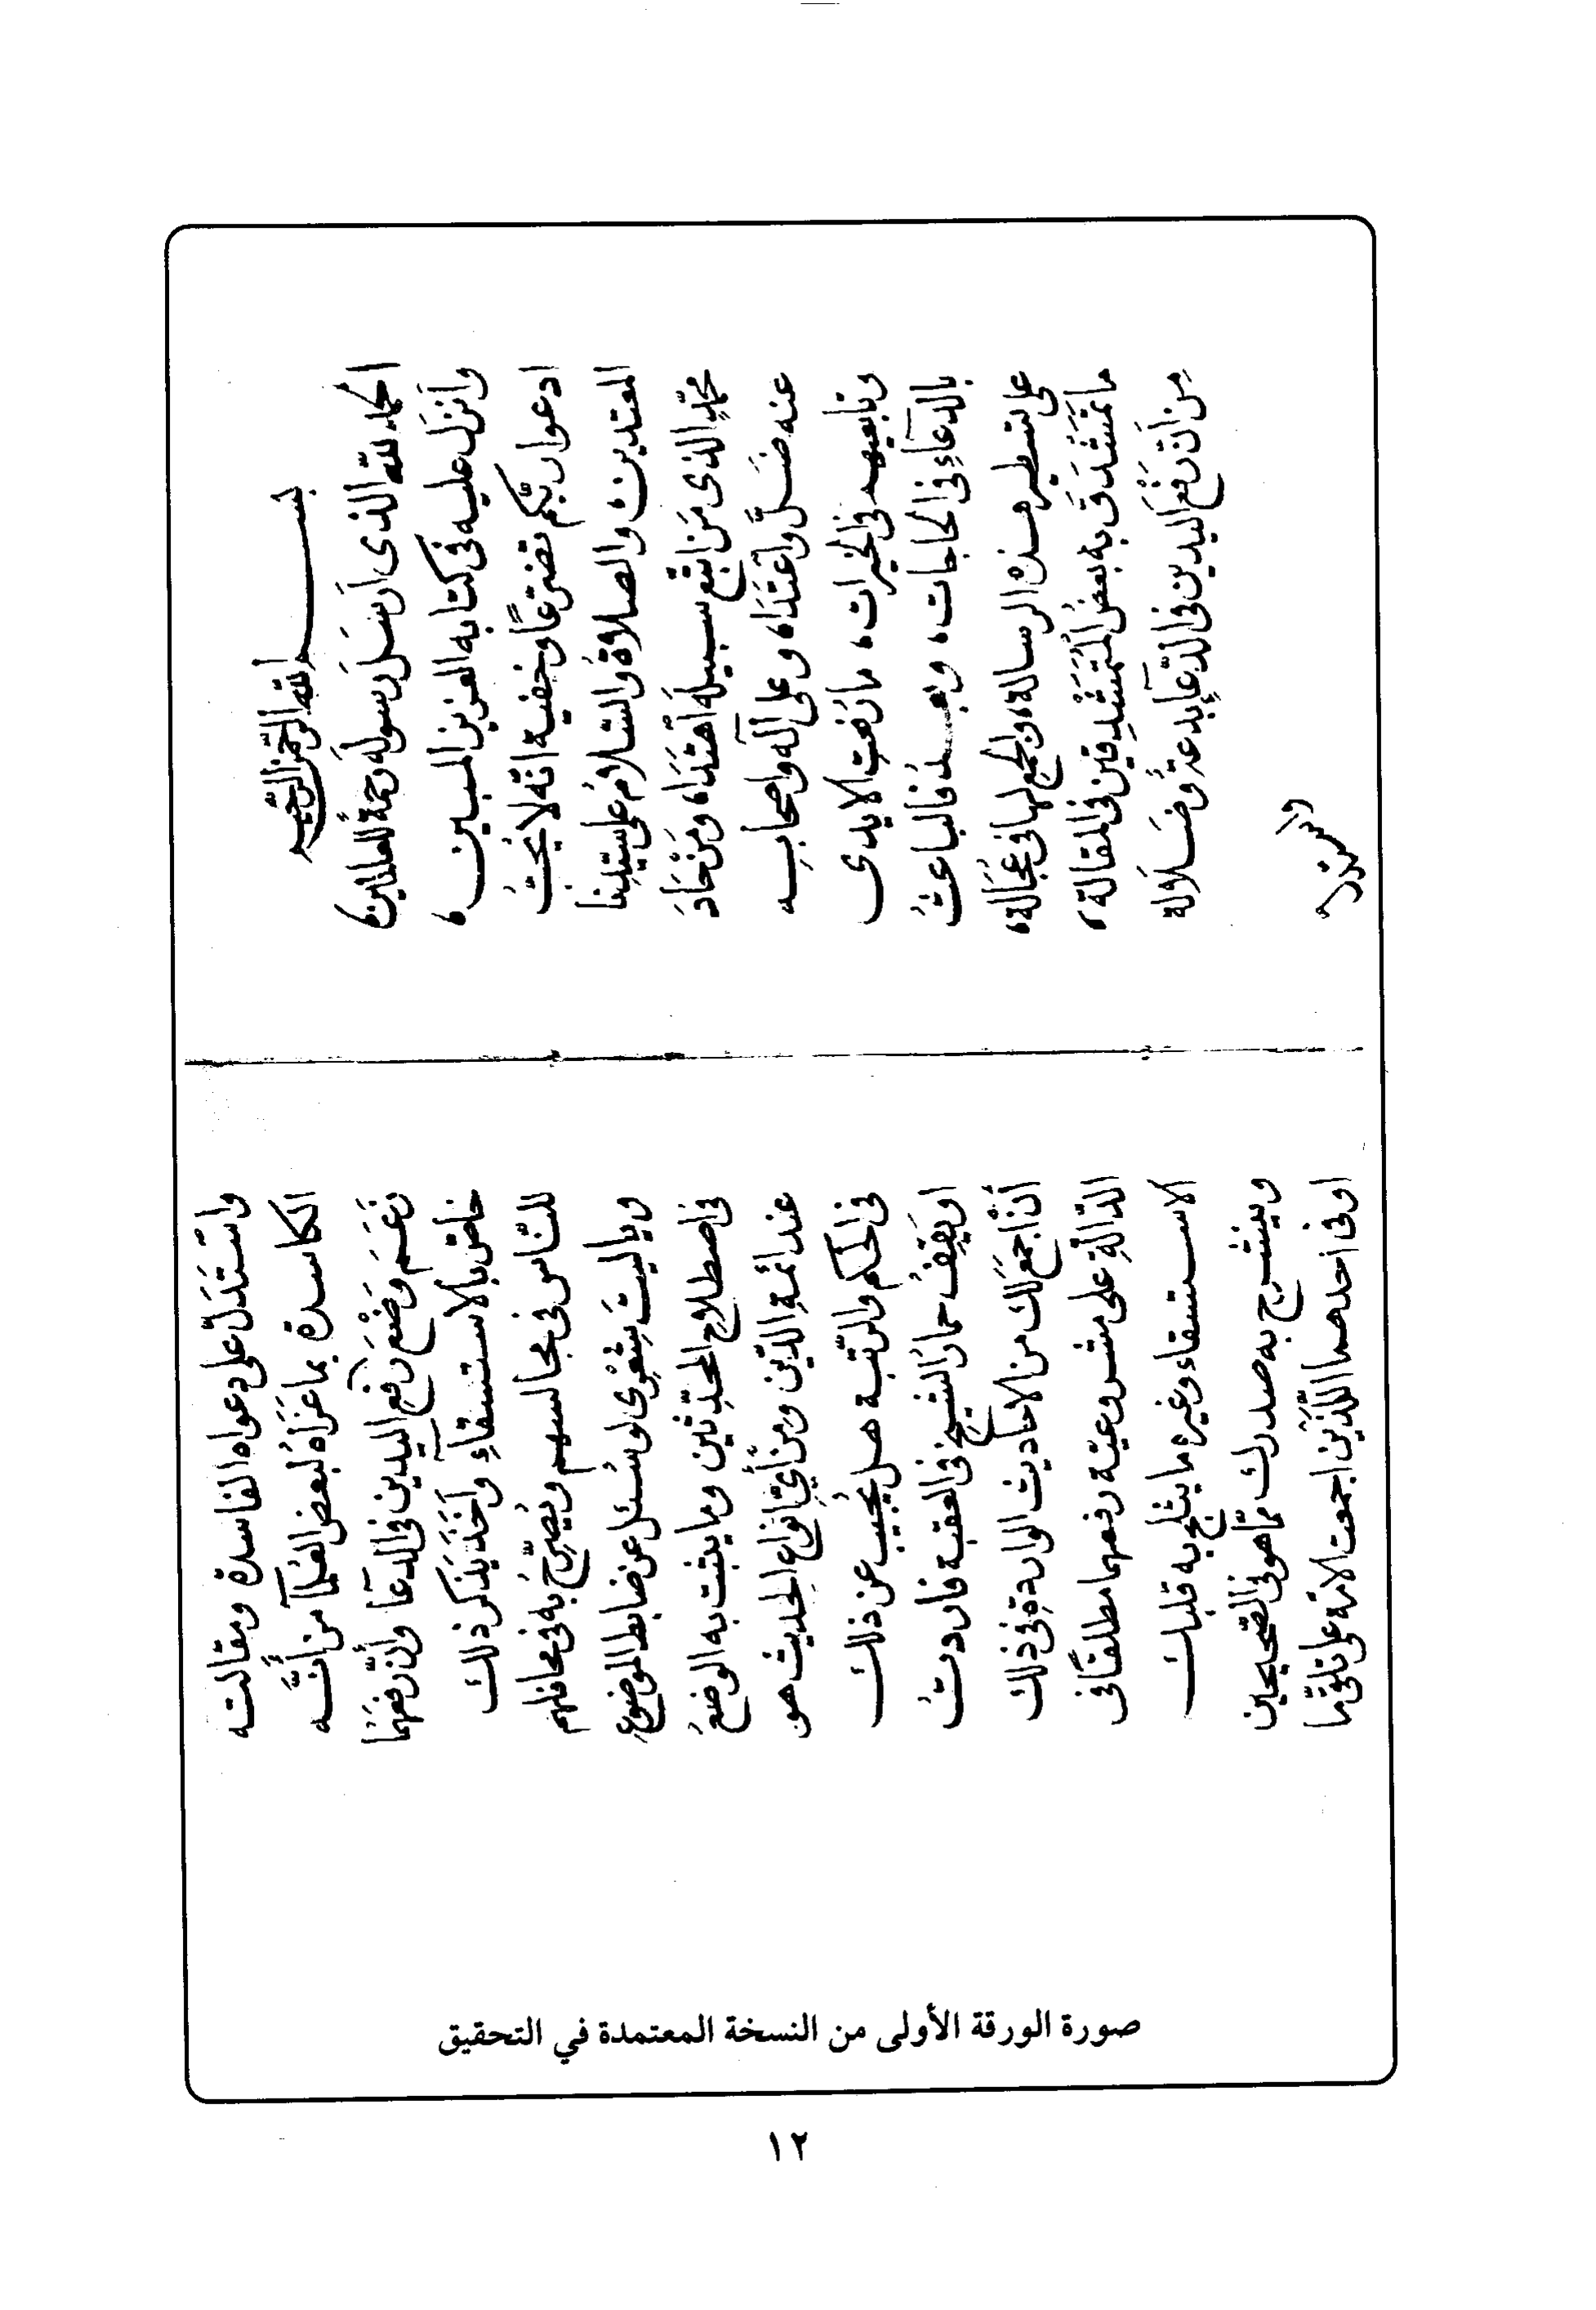 بسم الله الرحمن الرحيم
الحمد لله الذى اَرسَلَ رسوله رحمةً للعالمين،
وأنزَلَ عليه فى كتابه العزيز المبين،
ادعوا ربّكم تضرّعًا وخفية انّه لا يُحبُّ
المعتدين، والصلاةُ والسّلامُ على سيّدِنا
محمّدٍ الذى مَن اتّبع سبيلَه اَهتَدَا، ومَنْ حَادَ
عنه ضَلَّ واَعتَدَا، وعلى آله واصحابِه
وتابعيهم فى الخيرات، ما رُفعتِ الايدى
بالدعآءِ فى الحاجات، وبعــدُ فالباعثُ
على تسطير هذه الرسالة، والجمع لها فى عُجَالة،
ما تَمَشْدَقَ به بعضُ المُتَمَشْدِقين فى المقالة،
مِن اَنّ رَفْعَ اليدين فى الدّعآءِ بدعةٌ وضَلَالة
واَسْتَدَلّ على دعواه الفاسدة ومقالته
الكاسدة بما عَزَاهُ لبعض العُلمآ من أنَّه
زَعَمَ وَضْعَ رَفعِ اليدين فى الدعآ وأنّ رفعَهُمَا
خاصّ بالاستسقآءِ وأَخَذَ يَذكر ذلك
للنّاس فى مجالسهم ويُصَرِّحُ به فى محافلهم
وياليتَ شِعْرِى لو سُئل عن ضابط الموضوعِ
فى اصطلاحِ المحدّثين وما يثبت به الوضعُ
عند ائمةِ الدّين ومن أَيِّ انواع الحديث هو
فى الحكم والرّتبة هل يُجيب عن ذلك
او يَقِفُ حمارُ الشيخ فى العقبة فاردتُ
أنْ أجمَعَ لك من الاحاديث الواردةِ فى ذلك
الدّالّةِ على مشروعيّة رفعهما مطلقًا فى
الاستسقاء وغيره ما يثلج به قلبك
وينشرح به صدرك ممّا هو فى الصّحيحين
او فى احدهما اللّذَين اجمعت الامّة على تلقّى ما
صورة الورقة الأولى من النسخة المعتمدة في التحقيق
١٢